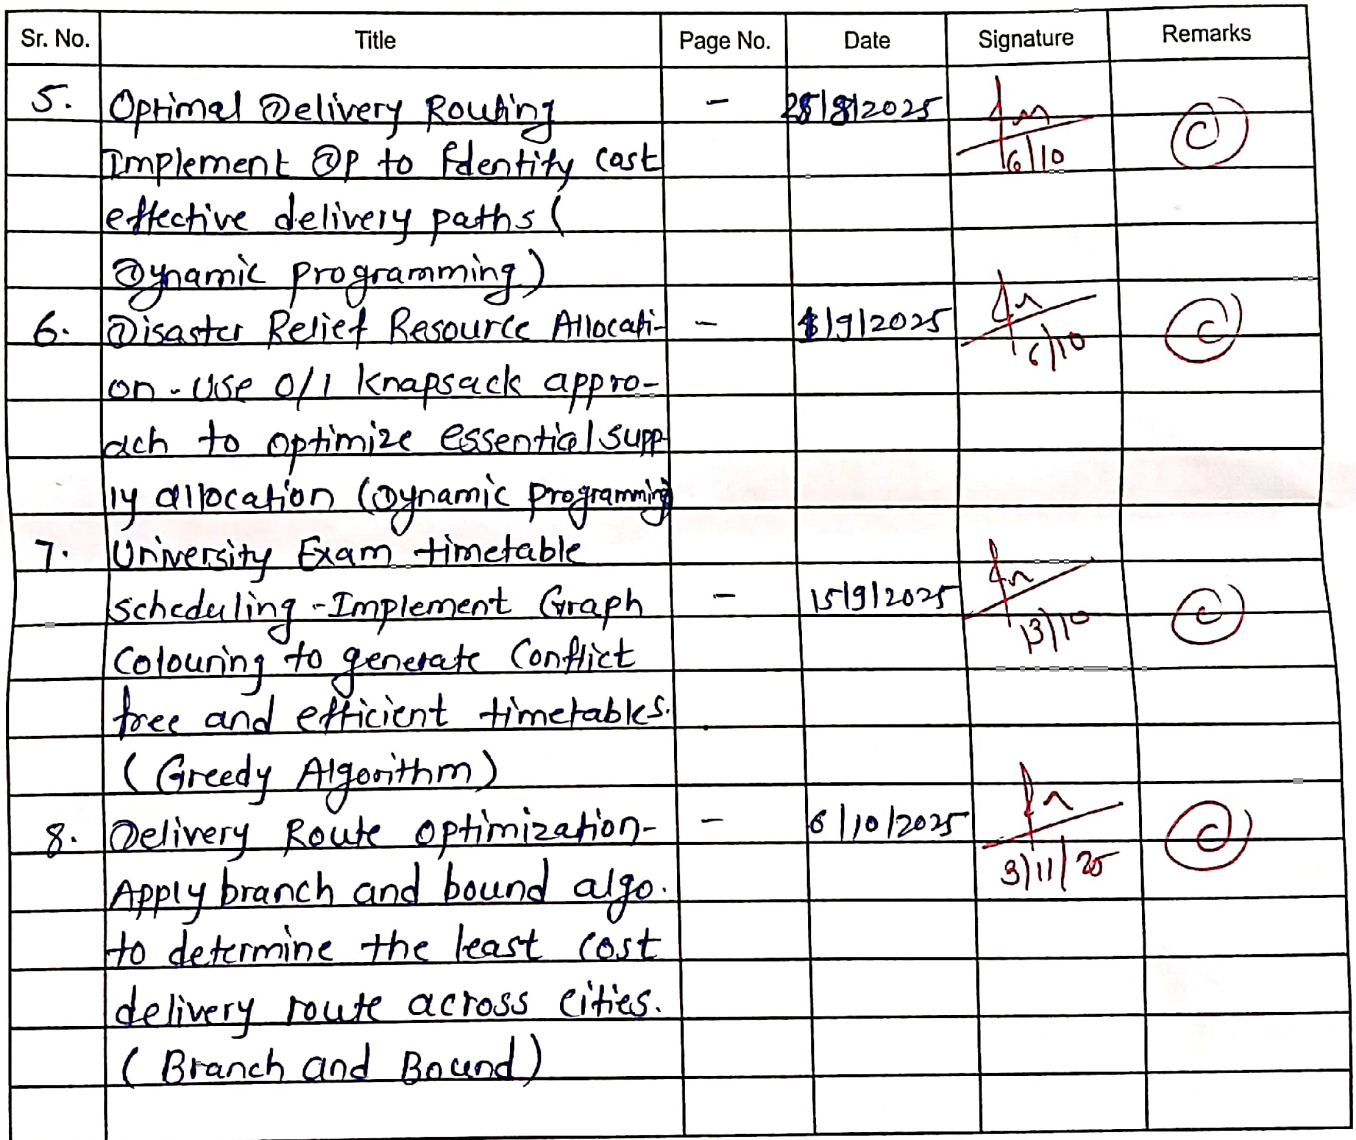 Sr. No. Title Page No. Date Signature Remarks
5. Optimal Delivery Routing - 25/8/2025
Implement DP to Identify cost 6/10 C
effective delivery paths (
Dynamic programming)
6. Disaster Relief Resource Allocati- - 8/9/2025 C
on - Use 0/1 knapsack appro- 6/10
ach to optimize essential supp-
ly allocation (Dynamic programming
7. University Exam timetable
scheduling - Implement Graph - 15/9/2025 C
Colouring to generate Conflict 13/10
free and efficient timetables.
(Greedy Algorithm)
8. Delivery Route optimization- - 6/10/2025 C
Apply branch and bound algo. 3/11/25
to determine the least cost
delivery route across cities.
(Branch and Bound)